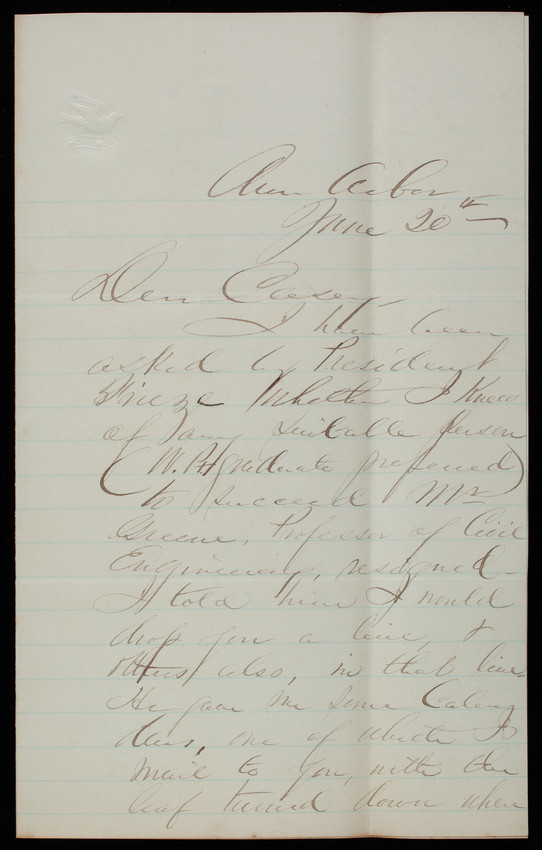 Ann Arbor
June 20th
Dear Casey,
I have been
asked by President
Frieze whether I knew
of any suitable person
(W.P. graduate preferred)
to succeed Mr
Greene, Professor of Civil
Engineering, resigned—
I told him I would
drop you a line, &
others also, in that line.
He gave me some Calen
dars, one of which I
mail to you, with the
leaf turned down when